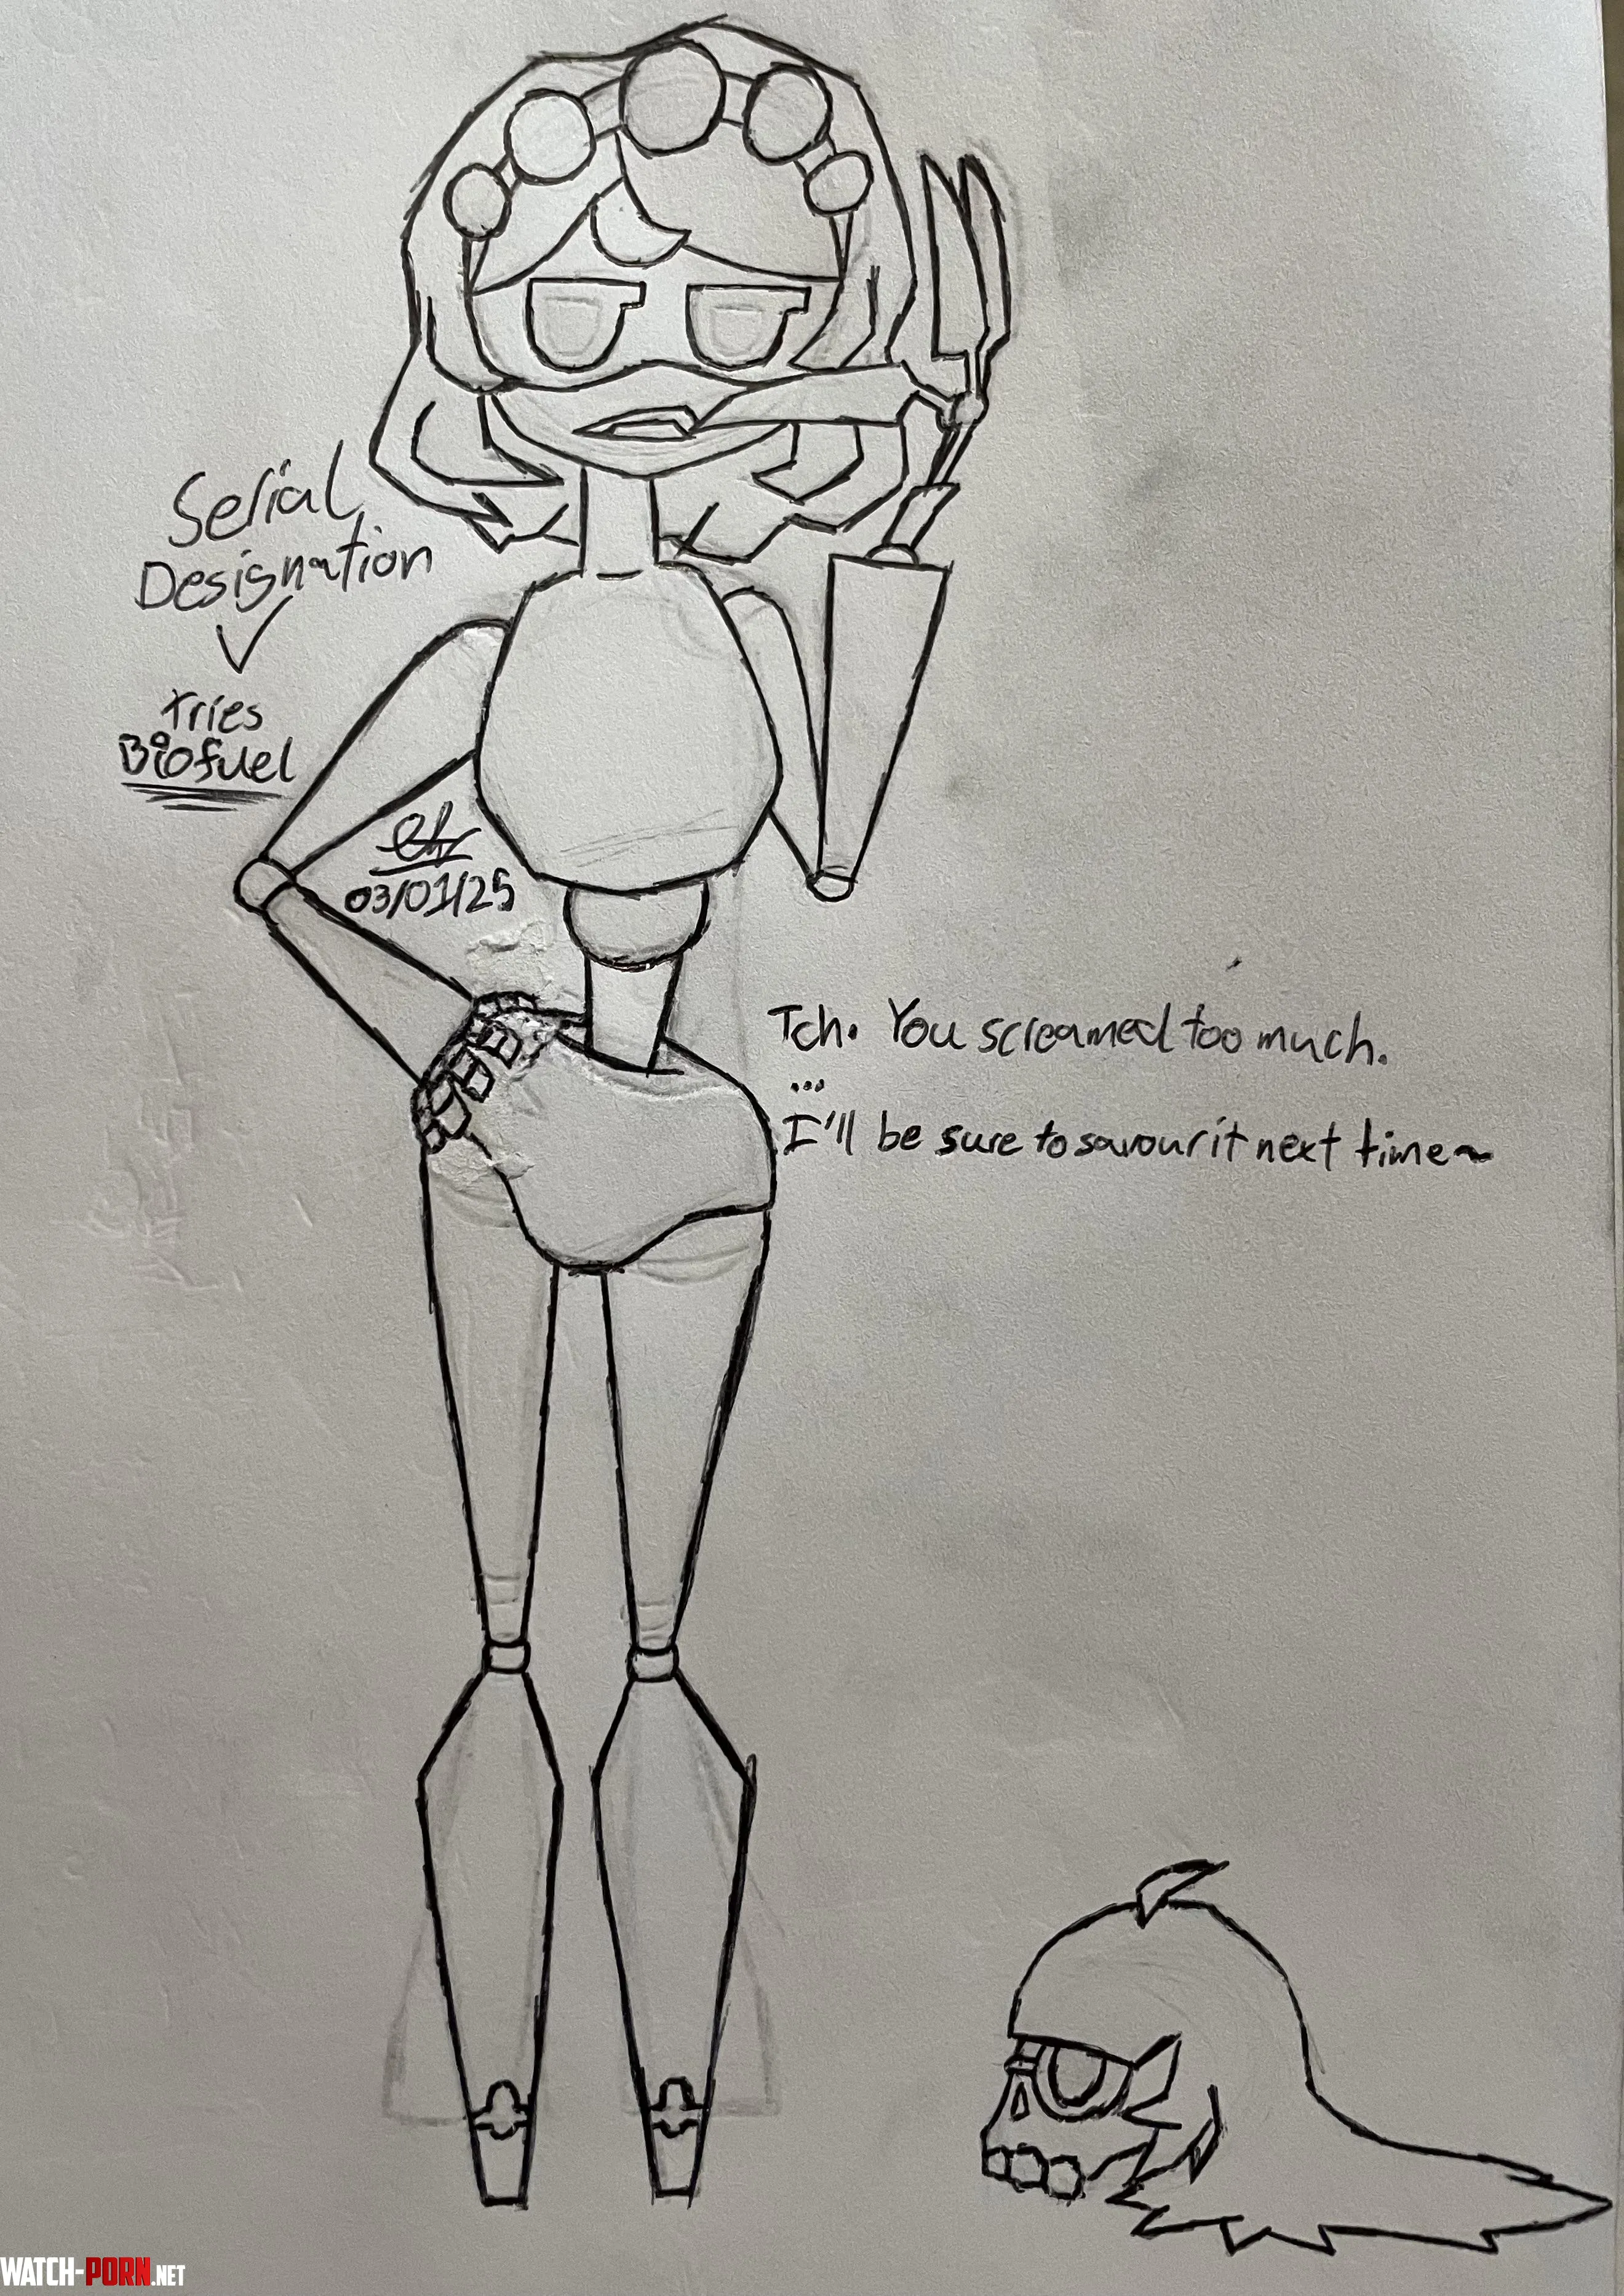 Serial
Designation
V
tries
Biofuel
03/01/25
Tch. You screamed too much.
...
I'll be sure to savour it next time~
WATCH-PORN.NET